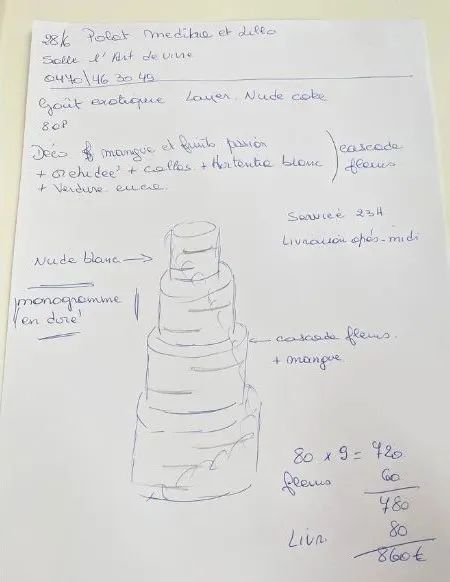 28/6 Polat Medina et Lilla
Salle l'Art de vivre
0470/46 30 49
Goût exotique Layer. Nude cake
80P
Déco mangue et fruits passion
+ orchidée + callas + Hortentia blanc
+ Verdure
cascade
fleurs
Service 23H
Livraison après-midi
Nude blanc →
monogramme
en doré
← cascade fleurs.
+ mangue
80 x 9 = 720
fleurs 60
780
Livr. 80
860€